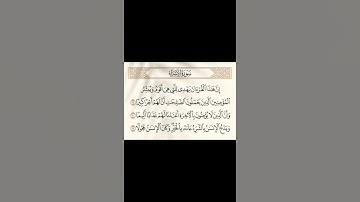 سورة الإسراء
إِنَّ هَٰذَا ٱلْقُرْءَانَ يَهْدِى لِلَّتِى هِىَ أَقْوَمُ وَيُبَشِّرُ
ٱلْمُؤْمِنِينَ ٱلَّذِينَ يَعْمَلُونَ ٱلصَّٰلِحَٰتِ أَنَّ لَهُمْ أَجْرًا كَبِيرًا ٩
وَأَنَّ ٱلَّذِينَ لَا يُؤْمِنُونَ بِٱلْءَاخِرَةِ أَعْتَدْنَا لَهُمْ عَذَابًا أَلِيمًا ١٠
وَيَدْعُ ٱلْإِنسَٰنُ بِٱلشَّرِّ دُعَآءَهُۥ بِٱلْخَيْرِ وَكَانَ ٱلْإِنسَٰنُ عَجُولًا ١١